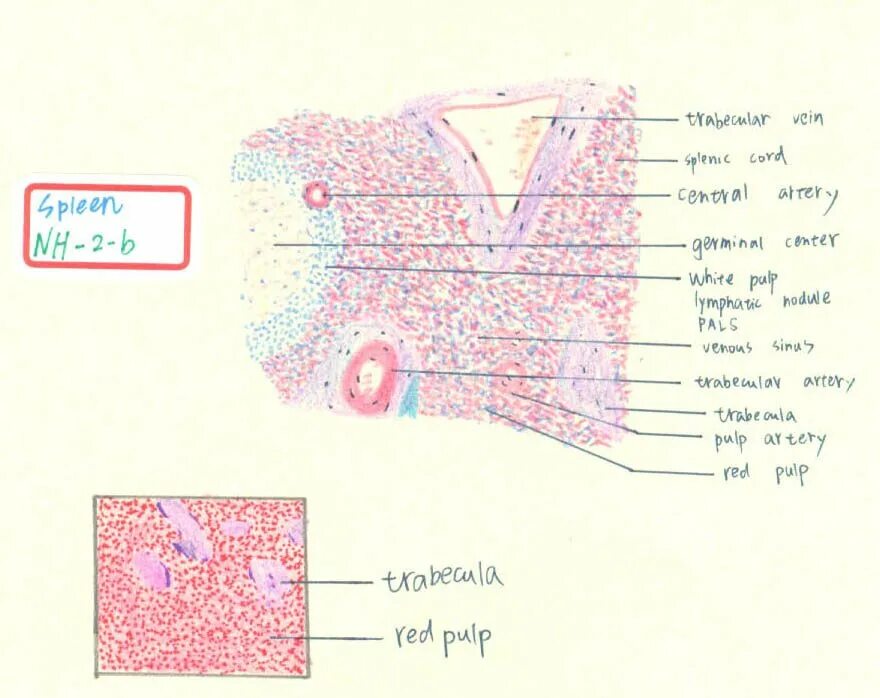 Spleen
NH-2-b
trabecular vein
splenic cord
central artery
germinal center
White pulp
lymphatic nodule
PALS
venous sinus
trabecular artery
trabecula
pulp artery
red pulp
trabecula
red pulp